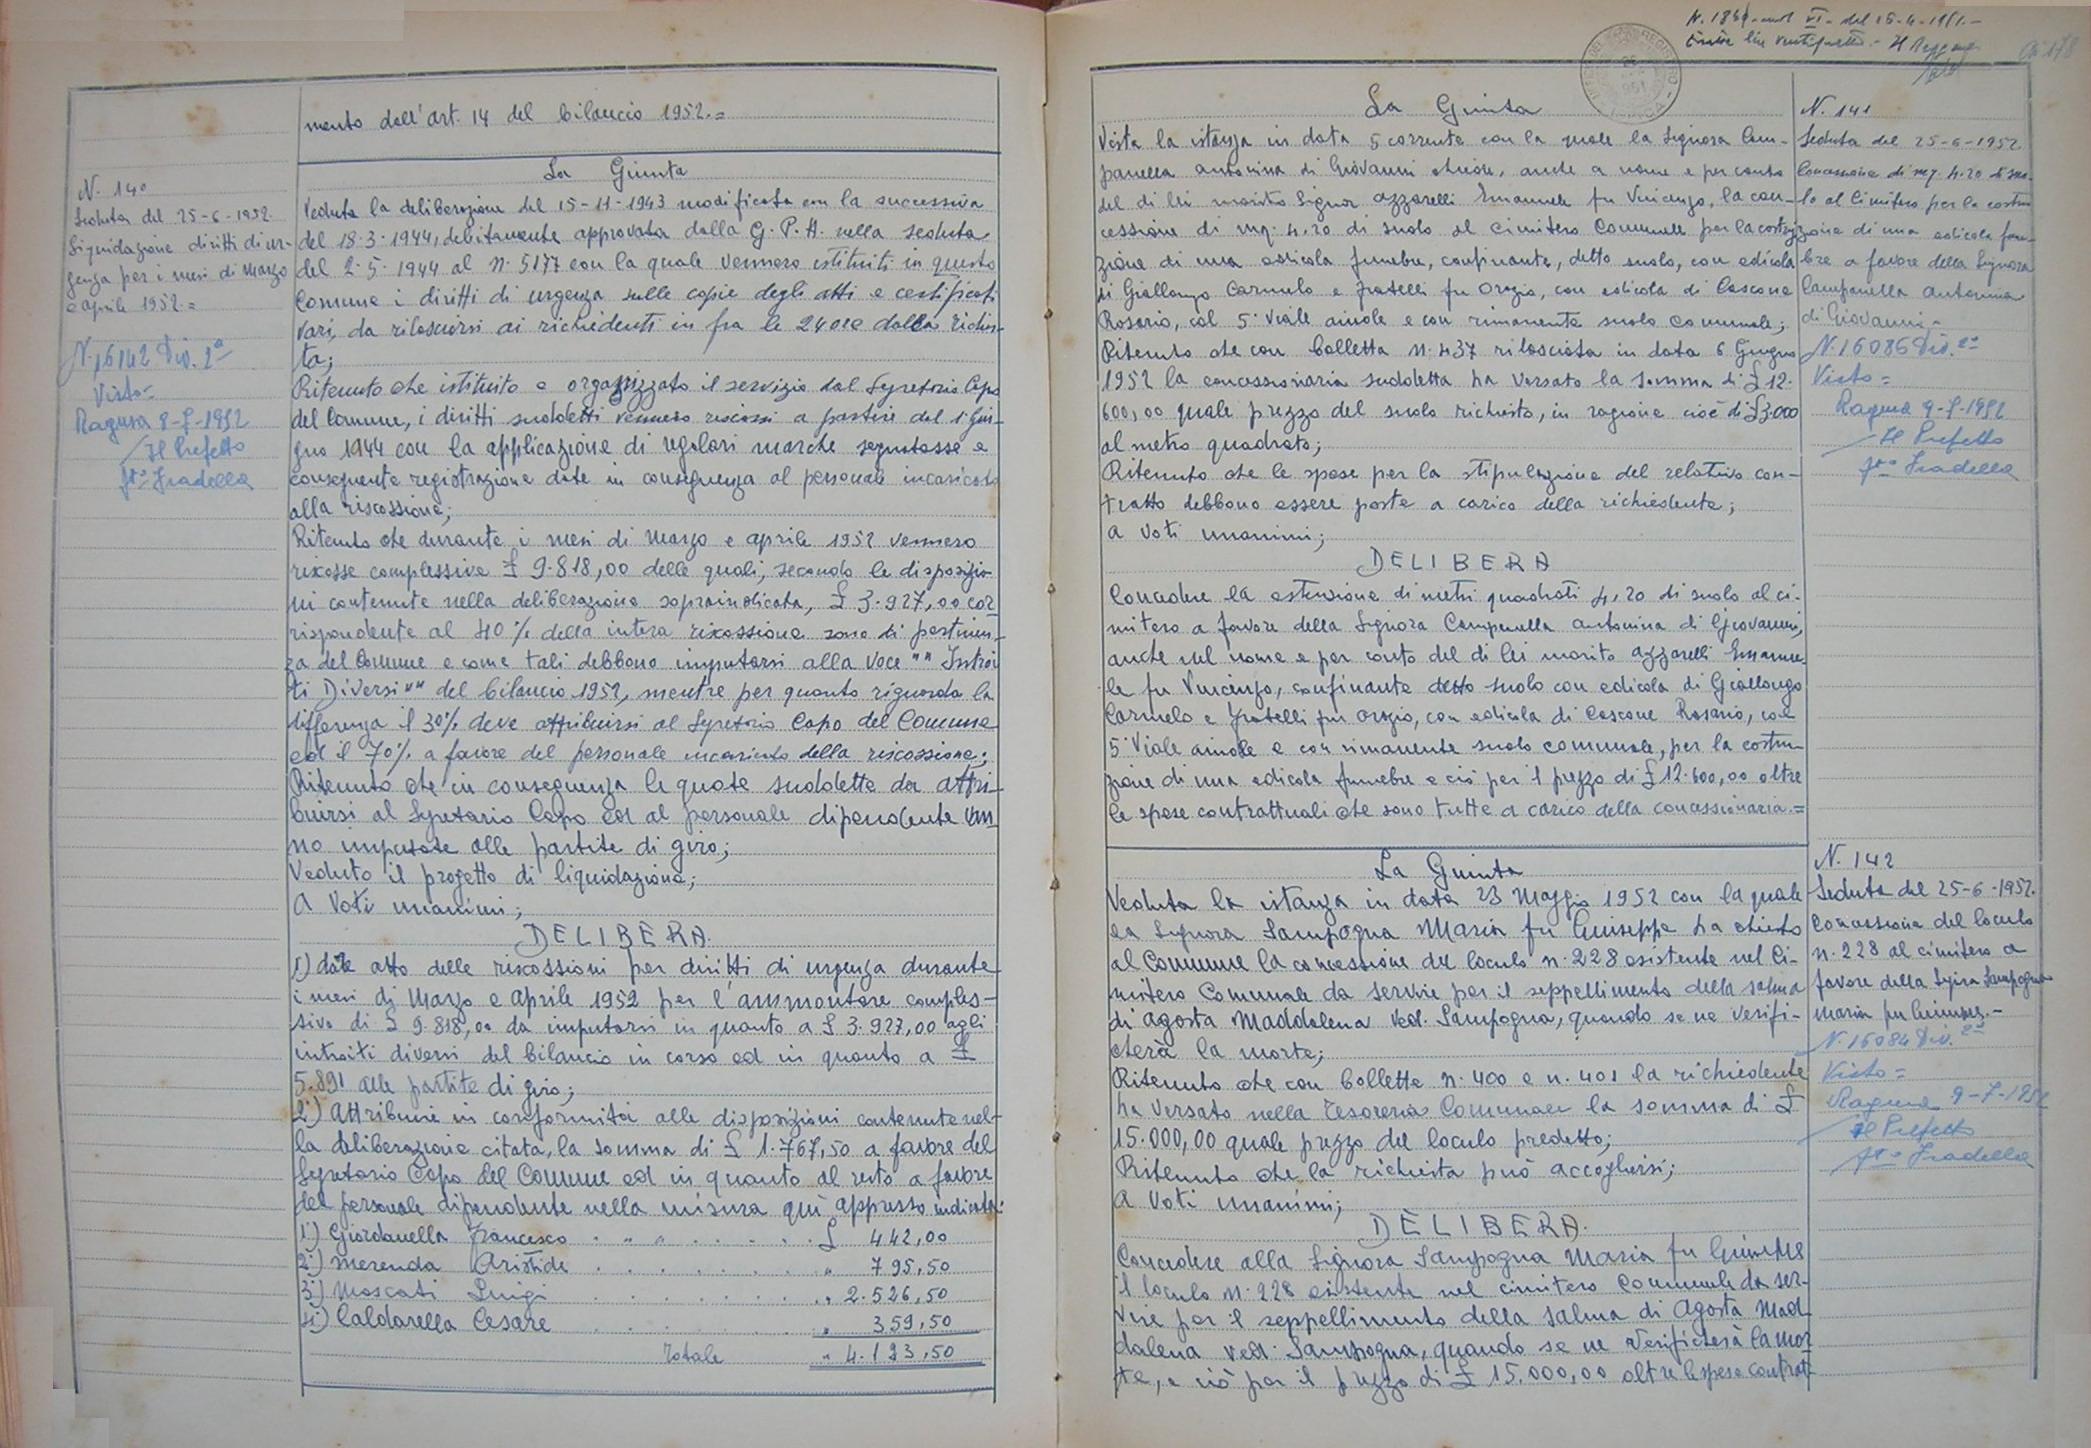 mento dell'art. 14 del bilancio 1952.=
N. 140
Seduta del 25-6-1952.
Liquidazione diritti di ur-
genza per i mesi di Marzo
e aprile 1952=
N. 16142 Div. 2ª
Visto=
Ragusa 8-7-1952
Il Prefetto
fto Fradella
La Giunta
Veduta la deliberazione del 15-11-1943 modificata con la successiva
del 18-3-1944, debitamente approvata dalla G. P. A. nella seduta
del 2-5-1944 al N. 5177 con la quale vennero istituiti in questo
Comune i diritti di urgenza sulle copie degli atti e certificati
vari, da rilasciarsi ai richiedenti in fra le 24 ore dalla richie-
sta;
Ritenuto che istituito e organizzato il servizio dal Segretario Capo
del Comune, i diritti suddetti vennero riscossi a partire del 1° Giu-
gno 1944 con la applicazione di regolari marche segnatasse e
conseguente registrazione date in conseguenza al personale incaricato
alla riscossione;
Ritenuto che durante i mesi di Marzo e aprile 1952 vennero
riscosse complessive £ 9.818,00 delle quali, secondo le disposizio
ni contenute nella deliberazione sopraindicata, £ 3.927,00 cor
rispondente al 40% della intera riscossione sono di pertinen-
za del Comune e come tali debbono imputarsi alla voce "" Introi
ti Diversi"" del bilancio 1952, mentre per quanto riguarda la
differenza il 30% deve attribuirsi al Segretario Capo del Comune
ed il 70% a favore del personale incaricato della riscossione;
Ritenuto che in conseguenza le quote suddette da attri-
buirsi al Segretario Capo ed al personale dipendente van
no imputate alle partite di giro;
Veduto il progetto di liquidazione;
A Voti unanimi;
DELIBERA
1) dare atto delle riscossioni per diritti di urgenza durante
i mesi di Marzo e Aprile 1952 per l'ammontare comples-
sivo di £ 9.818,00 da imputarsi in quanto a £ 3.927,00 agli
introiti diversi del bilancio in corso ed in quanto a £
5.891 alle partite di giro;
2) Attribuire in conformità alle disposizioni contenute nel-
la deliberazione citata, la somma di £ 1.767,50 a favore del
Segretario Capo del Comune ed in quanto al resto a favore
del personale dipendente nella misura qui appresso indicata:
1°) Giordanella Francesco . " " . . . . . . £ 442,00
2°) Merenda Aristide . . . . . . . . " 795,50
3°) Moscati Luigi . . . . . . . . " 2.526,50
4°) Caldarella Cesare . . . . . . . " 359,50
Totale " 4.123,50
La Giunta
Vista la istanza in data 5 corrente con la quale la Signora Cam-
panella antonina di Giovanni chiede, anche a nome e per conto
del di lei marito Signor azzarelli Emanuele fu Vincenzo, la con-
cessione di mq. 4,20 di suolo al cimitero Comunale per la costru
zione di una edicola funebre, confinante, detto suolo, con edicola
di Giallongo Carmelo e fratelli fu Orazio, con edicola di Cascone
Rosario, col 5° viale aiuole e con rimanente suolo comunale;
Ritenuto che con bolletta n. 437 rilasciata in data 6 Giugno
1952 la concessionaria suddetta ha versato la somma di £ 12.
600,00 quale prezzo del suolo richiesto, in ragione cioè di £ 3.000
al metro quadrato;
Ritenuto che le spese per la stipulazione del relativo con-
tratto debbono essere poste a carico della richiedente;
A Voti unanimi;
DELIBERA
Concedere la estensione di metri quadrati 4,20 di suolo al ci-
mitero a favore della Signora Campanella antonina di Giovanni,
anche nel nome e per conto del di lei marito azzarelli Emanue-
le fu Vincenzo, confinante detto suolo con edicola di Giallongo
Carmelo e fratelli fu Orazio, con edicola di Cascone Rosario, col
5° Viale aiuole e con rimanente suolo comunale, per la costru-
zione di una edicola funebre e ciò per il prezzo di £ 12.600,00 oltre
le spese contrattuali che sono tutte a carico della concessionaria.=
N. 141
Seduta del 25-6-1952
Concessione di mq. 4.20 di suo-
lo al Cimitero per la costru
zione di una edicola fune-
bre a favore della Signora
Campanella Antonina
di Giovanni.-
N. 16086 Div. 2ª
Visto=
Ragusa 9-7-1952
Il Prefetto
fto Fradella
La Giunta
Veduta la istanza in data 23 Maggio 1952 con la quale
la Signora Sampogna Maria fu Giuseppe ha chiesto
al Comune la concessione del loculo n. 228 esistente nel Ci-
mitero Comunale da servire per il seppellimento della salma
di Agosta Maddalena Ved. Sampogna, quando se ne verifi-
cherà la morte;
Ritenuto che con bollette n. 400 e n. 401 la richiedente
ha versato nella Tesoreria Comunale la somma di £
15.000,00 quale prezzo del loculo predetto;
Ritenuto che la richiesta può accogliersi;
A Voti unanimi;
DELIBERA.
Concedere alla Signora Sampogna Maria fu Giuseppe
il loculo N. 228 esistente nel cimitero Comunale da ser-
vire per il seppellimento della salma di Agosta Mad
dalena ved. Sampogna, quando se ne verificherà la mor
te, e ciò per il prezzo di £ 15.000,00 oltre le spese contrat
N. 142
Seduta del 25-6-1952.
Concessione del loculo
n. 228 al cimitero a
favore della Sig.ra Sampogna
Maria fu Giuseppe.-
N. 16084 Div. 2ª
Visto=
Ragusa 9-7-1952
Il Prefetto
fto Fradella